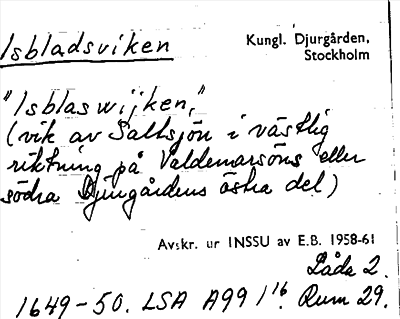 Isbladsviken
Kungl. Djurgården,
Stockholm
"Isblaswijken,"
(vik av Saltsjön i västlig
riktning på Valdemarsöns eller
södra Djurgårdens östra del)
Avskr. ur INSSU av E.B. 1958-61
Låda 2.
1649-50. LSA A99 1¹⁶. Rum 29.